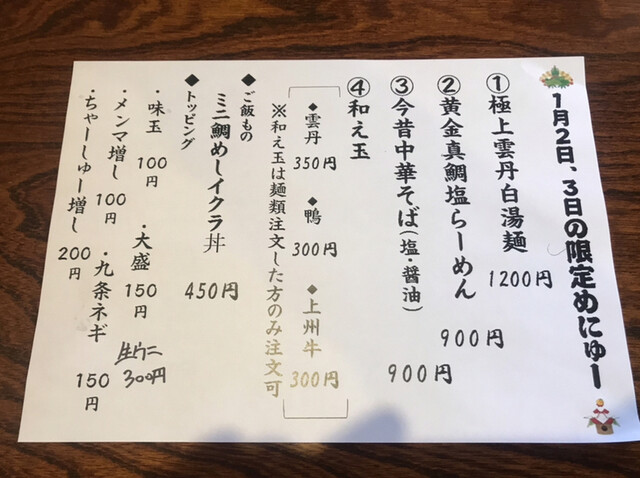 1月2日、3日の限定めにゅー
①極上雲丹白湯麺 1200円
②黄金真鯛塩らーめん 900円
③今昔中華そば(塩・醤油) 900円
④和え玉
◆雲丹 350円 ◆鴨 300円 ◆上州牛 300円
※和え玉は麺類注文した方のみ注文可
◆ご飯もの
ミニ鯛めしイクラ丼 450円
◆トッピング
・味玉 100円 ・大盛 150円 生ウニ 300円
・メンマ増し 100円 ・九条ネギ 150円
・ちゃーしゅー増し 200円